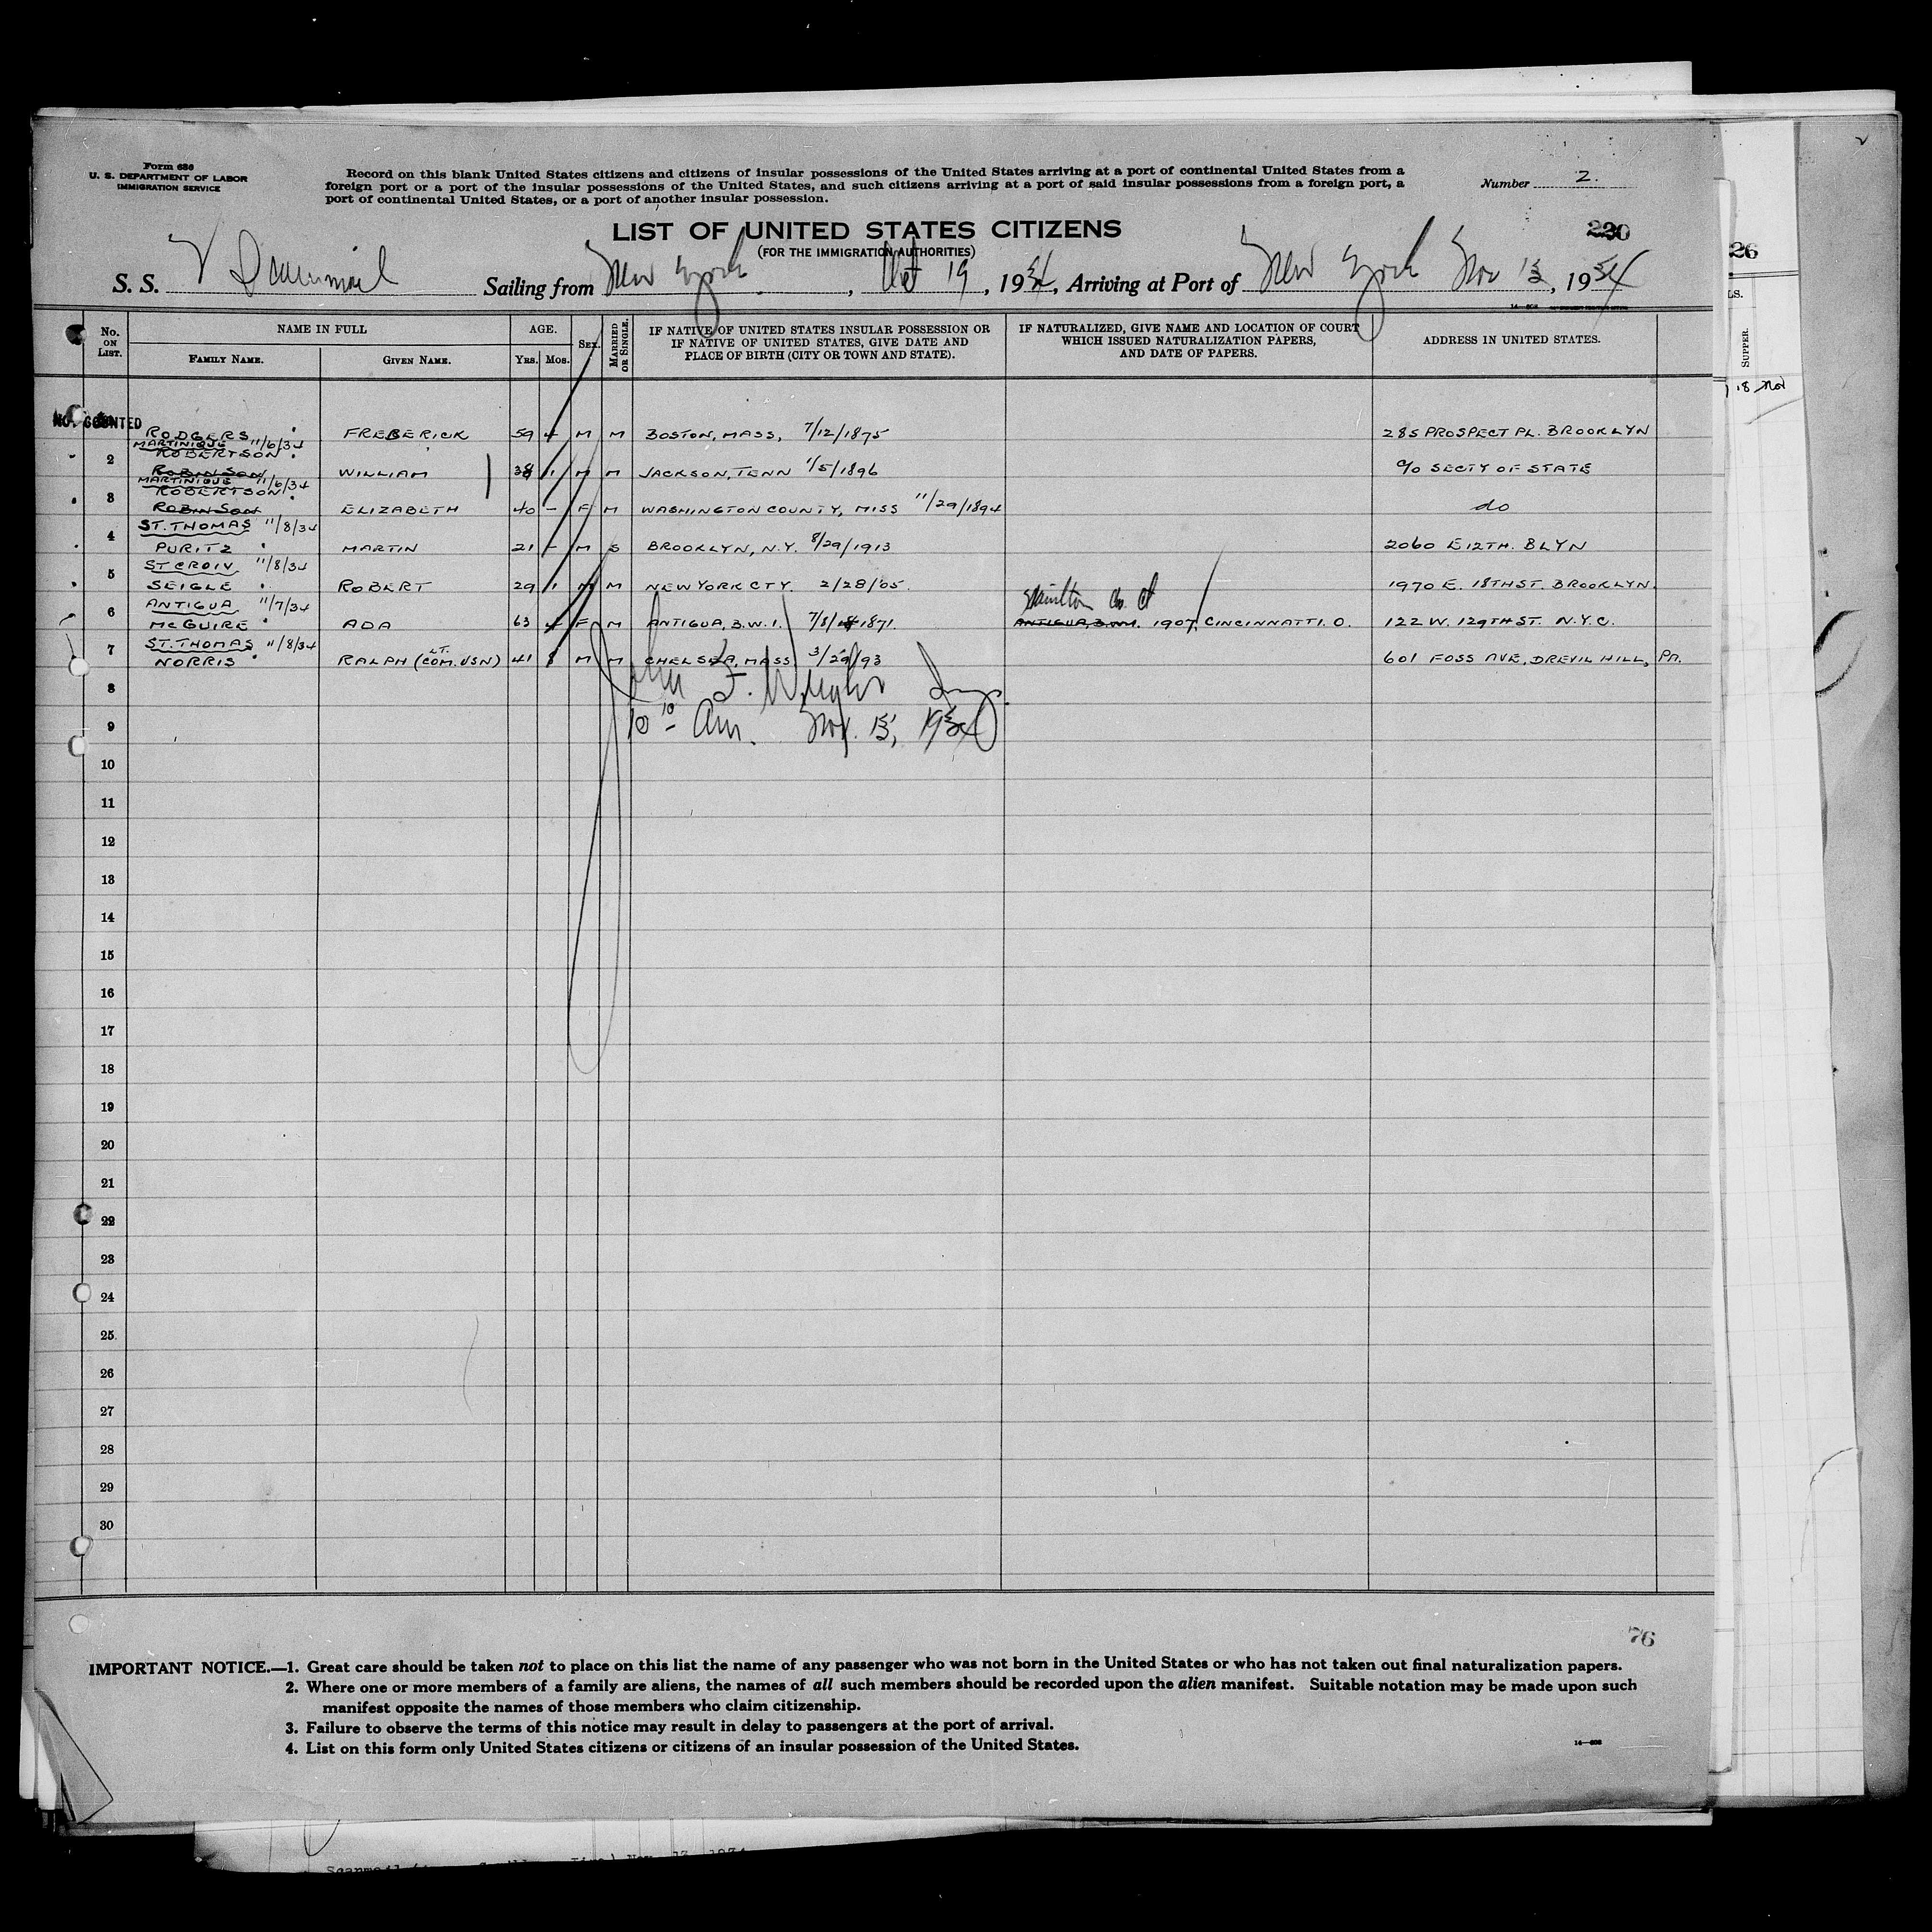 Form 686
U. S. DEPARTMENT OF LABOR
IMMIGRATION SERVICE
Record on this blank United States citizens and citizens of insular possessions of the United States arriving at a port of continental United States from a
foreign port or a port of the insular possessions of the United States, and such citizens arriving at a port of said insular possessions from a foreign port, a
port of continental United States, or a port of another insular possession.
Number 2.
LIST OF UNITED STATES CITIZENS
(FOR THE IMMIGRATION AUTHORITIES)
230
26
S. S. Sailing from New York, Oct 19, 1934, Arriving at Port of New York Nov 13, 1934
No. ON LIST.
NAME IN FULL
FAMILY NAME.
GIVEN NAME.
AGE.
YRS. MOS.
SEX.
MARRIED OR SINGLE.
IF NATIVE OF UNITED STATES INSULAR POSSESSION OR
IF NATIVE OF UNITED STATES, GIVE DATE AND
PLACE OF BIRTH (CITY OR TOWN AND STATE).
IF NATURALIZED, GIVE NAME AND LOCATION OF COURT
WHICH ISSUED NATURALIZATION PAPERS,
AND DATE OF PAPERS.
ADDRESS IN UNITED STATES.
SUPPER.
18 Nov
NOT COUNTED
RODGERS FREDERICK 59 4 M M BOSTON, MASS, 7/12/1875 285 PROSPECT PL. BROOKLYN
MARTINIQUE 11/6/34
ROBERTSON
2 ROBINSON WILLIAM 38 1 M M JACKSON, TENN 1/5/1896 c/o SECTY OF STATE
MARTINIQUE 11/6/34
ROBERTSON
3 ROBINSON ELIZABETH 40 - F M WASHINGTON COUNTY, MISS 11/29/1894 do
ST. THOMAS 11/8/34
4 PURITZ MARTIN 21 - M S BROOKLYN, N.Y. 8/29/1913 2060 E 12TH. BLYN
ST CROIV 11/8/34
5 SEIGLE ROBERT 29 1 M M NEW YORK CTY. 2/28/05. 1970 E. 18TH ST. BROOKLYN.
ANTIGUA 11/7/34
Hamilton Co. Ct
6 McGUIRE ADA 63 4 F M ANTIGUA, B.W.I. 7/8/1871. ANTIGUA, B.W.I. 1907, CINCINNATTI. O. 122 W. 129TH ST. N.Y.C.
ST. THOMAS 11/8/34
7 NORRIS RALPH (LT. COM. USN) 41 8 M M CHELSEA, MASS 3/29/93 601 FOSS AVE, DREXIL HILL, PA.
8
John F.
9 10 10 Am. Nov. 13, 1934
10
11
12
13
14
15
16
17
18
19
20
21
22
23
24
25
26
27
28
29
30
76
IMPORTANT NOTICE.—1. Great care should be taken not to place on this list the name of any passenger who was not born in the United States or who has not taken out final naturalization papers.
2. Where one or more members of a family are aliens, the names of all such members should be recorded upon the alien manifest. Suitable notation may be made upon such
manifest opposite the names of those members who claim citizenship.
3. Failure to observe the terms of this notice may result in delay to passengers at the port of arrival.
4. List on this form only United States citizens or citizens of an insular possession of the United States.